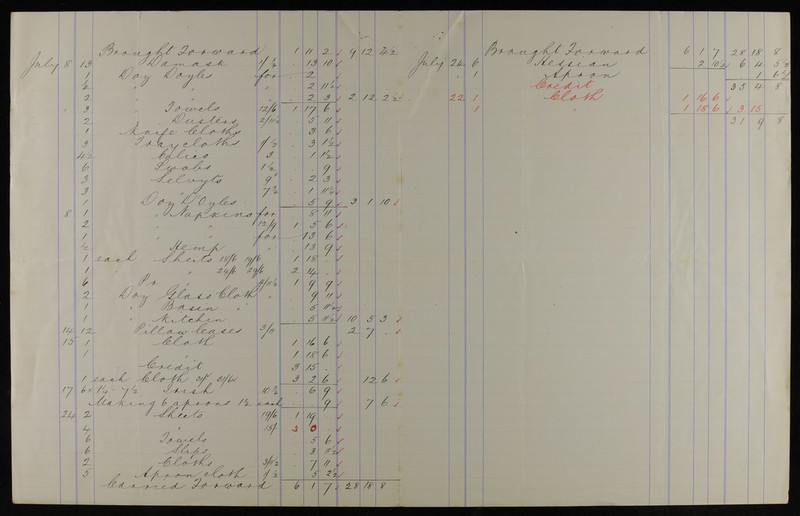 Brought Forward 1 11 2 9 12 4½
July 8 13 Damask 1/ 13 10
1 Doz Doyles for 2
½ " " " 2 11½
2 " " " 2 3 2 12 2½
3 " Towels 12/6 1 17 6
2 " Dusters 2/11½ 5 11
1 Knife Cloths 3 6
3 Tray cloths 1/ 3 1½
4½ Calico 3 1 1½
6 Swabs 1½ 9
3 Selvyts 9 2 3
3 " 7½ 1 11½
1 Doz D'Oyles 5 9 3 1 10
8 1 " Napkins for 8 11
2 " " 12/9 1 5 6
1 " " for 13 6
½ Hemp " 13 9
1 each Sheets 18/6 19/6 1 18
1 " " 24/6 29/6 2 14
6 Pr " 4/11½ 1 9 9
2 Doz Glass Cloth " 9 11
1 " Basin " 5 11½
1 " Kitchen " 5 11½ 10 5 3
14 12 Pillow Cases 3/11 2 7
15 1 Cloth 1 16 6
1 " 1 18 6
Credit 3 15
1 each Cloth 31/ 31/6 3 2 6 12 6
17 6 7½ Irish 10½ 6 9
Making 6 aprons 1½ each 9 7 6
24 2 Sheets 19/6 1 19
4 " 15/ 3 0
6 Towels 5 6
6 Slips 3 11½
2 Cloths 3/11½ 7 11
5 Apron cloth 1/½ 5 2½
Carried Forward 6 1 7 28 18 8
Brought Forward 6 1 7 28 18 8
July 24 6 Hessian 2 10½ 6 4 5½
" 1 Apron 1 6½
Credit 35 4 8
22 1 Cloth 1 16 6
1 " 1 18 6 3 15
31 9 8